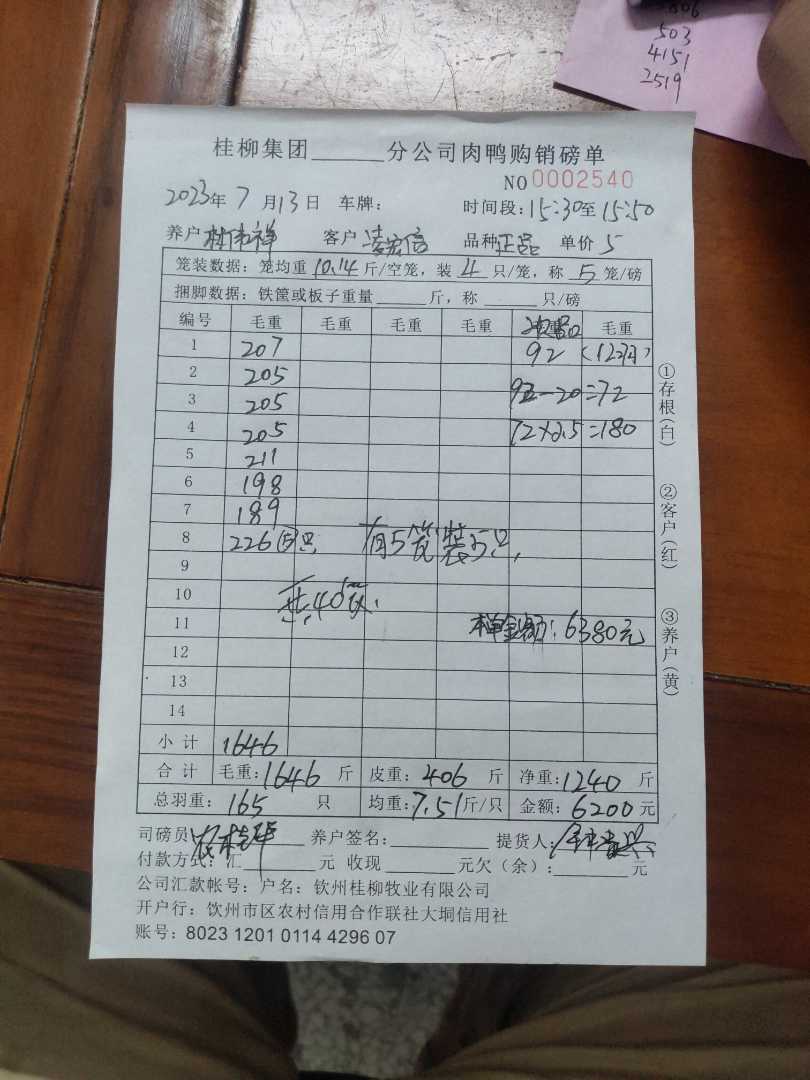 806
503
4151
2519
桂柳集团______分公司肉鸭购销磅单
NO 0002540
2023年 7 月 13 日 车牌: 时间段: 15:30 至 15:50
养户 林伟祥 客户 凌宏信 品种 正品 单价 5
笼装数据: 笼均重 10.14 斤/空笼, 装 4 只/笼, 称 5 笼/磅
捆脚数据: 铁筐或板子重量______斤, 称______只/磅
编号 毛重 毛重 毛重 毛重 毛重
1 207 92 (12只)
2 205
3 205 92-20=72
4 205 72×2.5=180
5 211
6 198
7 189
8 226 ⑤只 有5笼装5只,
9
10 共40笼.
11 本单金额: 6380元
12
13
14
小计 1646
合计 毛重: 1646 斤 皮重: 406 斤 净重: 1240 斤
总羽重: 165 只 均重: 7.51 斤/只 金额: 6200 元
司磅员: 养户签名: 提货人:
付款方式: 汇______元 收现______元欠(余):______元
公司汇款帐号: 户名: 钦州桂柳牧业有限公司
开户行: 钦州市区农村信用合作联社大垌信用社
账号: 8023 1201 0114 4296 07
①存根(白)
②客户(红)
③养户(黄)